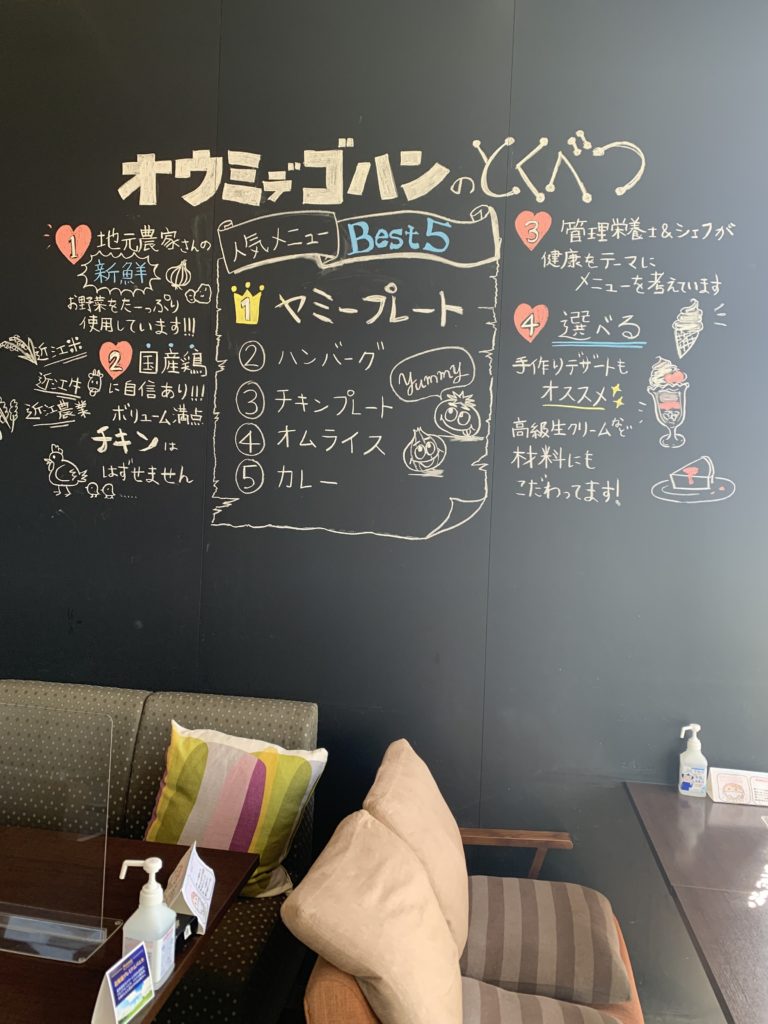 オウミデゴハンのとくべつ
1 地元農家さんの
新鮮
お野菜をたーっぷり
使用しています!!!
近江米
近江牛
近江農業
2 国産鶏
に自信あり!!!
ボリューム満点
チキンは
はずせません
.....
人気メニュー Best5
1 ヤミープレート
② ハンバーグ
③ チキンプレート
④ オムライス
⑤ カレー
Yummy
3 管理栄養士&シェフが
健康をテーマに
メニューを考えています
4 選べる
手作りデザートも
オススメ
高級生クリームなど
材料にも
こだわってます!